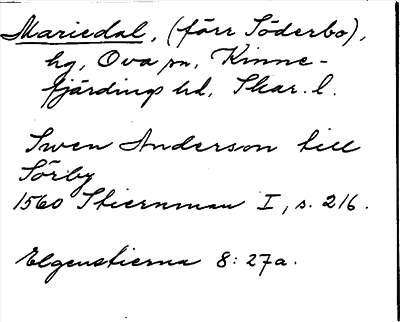 Mariedal, (förr Söderbo),
hg, Ova sn, Kinne-
fjärdings hd, Skar. l.
Swen Anderson till
Sörby
1560 Stiernman I, s. 216.
Elgenstierna 8:27a.